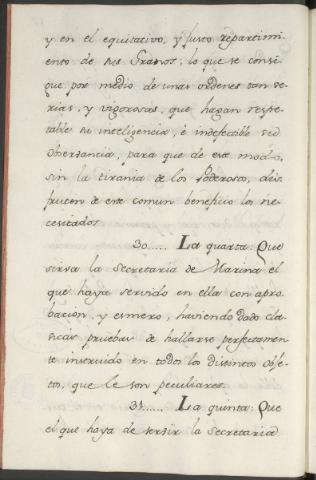 y en el equitativo, y justo repartimi
ento de sus Granos; lo que se consi
gue por medio de unas ordenes tan se
rias, y vigorosas, que hagan respe
table su inteligencia, é indefectible su
observancia, para que de este modo,
sin la tirania de los Poderosos, dis
fruten de este comun beneficio los ne
cesitados.
30..... La quarta: Que
sirva la Secretaria de Marina el
que haya servido en ella con apro
bacion, y esmero, haviendo dado cla
sicas pruebas de hallarse perfectamen
te instruido en todos los distintos obje
tos, que le son peculiares.
31...... La quinta: Que
el que haya de servir la Secretaria